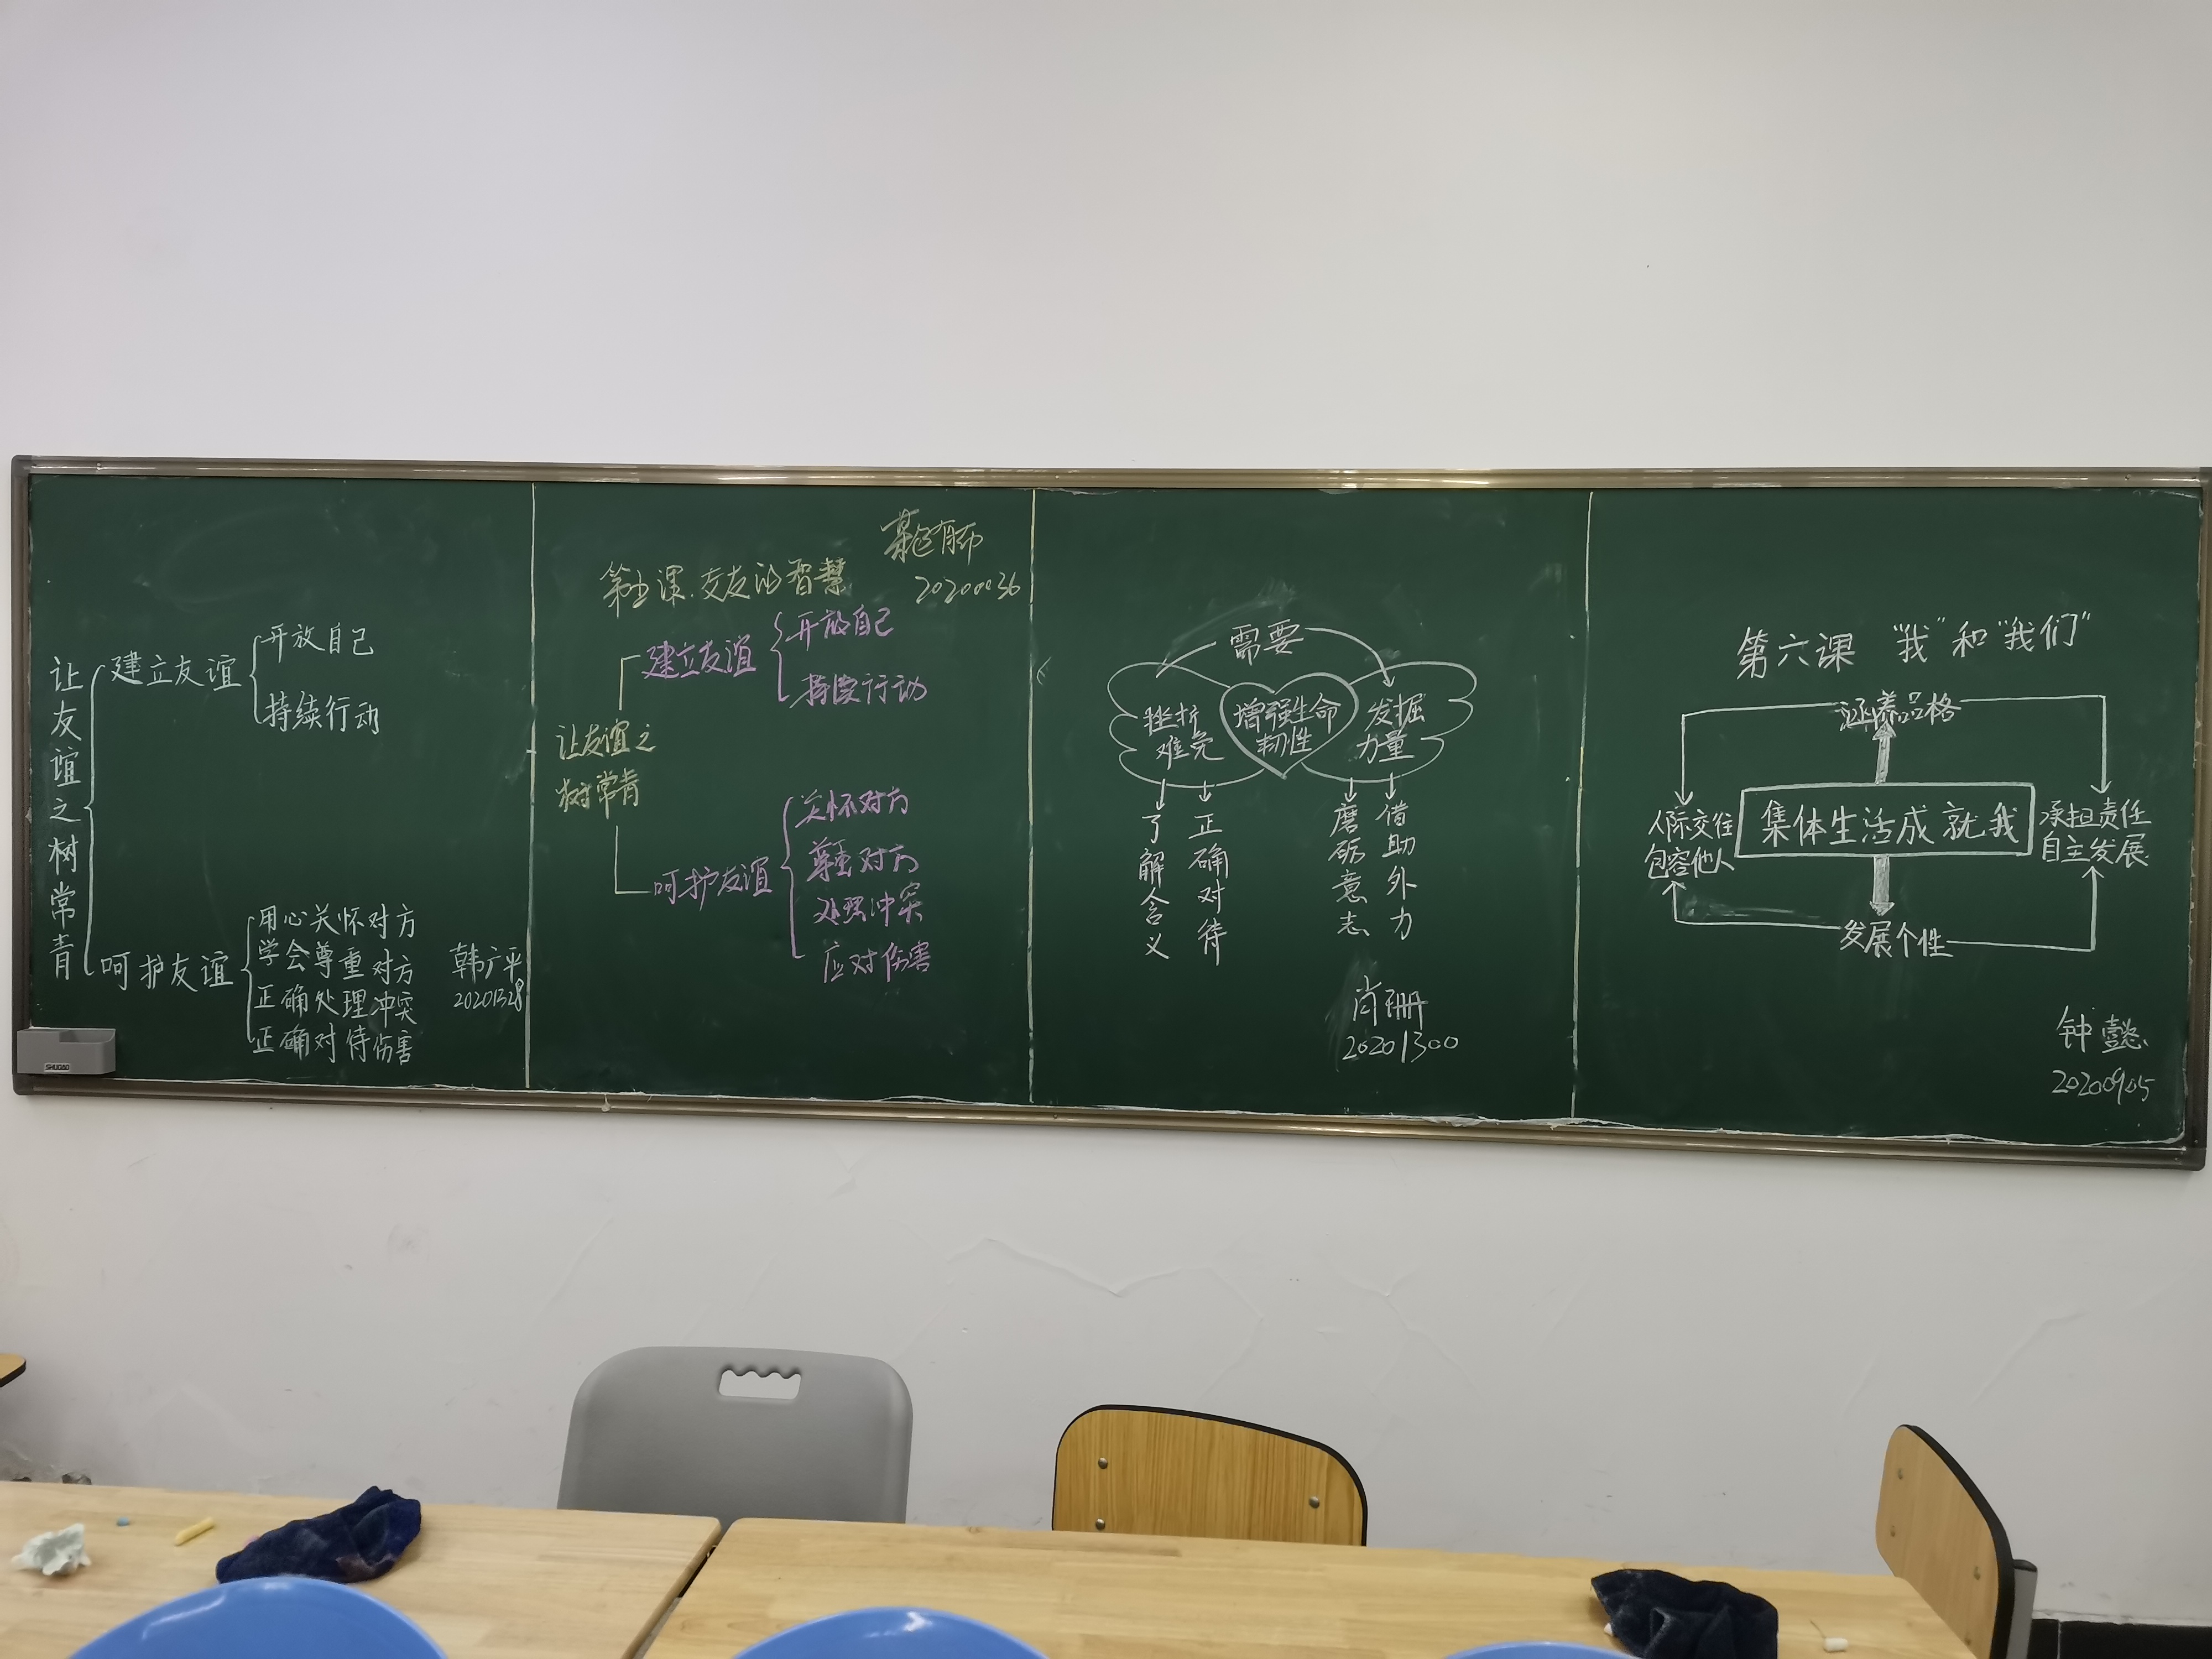 让友谊之树常青
建立友谊
开放自己
持续行动
呵护友谊
用心关怀对方
学会尊重对方
正确处理冲突
正确对待伤害
韩广平
20201328
SHUGAO
第五课.交友的智慧
20200036
让友谊之
树常青
建立友谊
开放自己
持续行动
呵护友谊
关怀对方
尊重对方
处理冲突
应对伤害
需要
挫折
难免
增强生命
韧性
发掘
力量
了解含义
正确对待
磨砺意志
借助外力
肖珊
20201300
第六课 “我”和“我们”
涵养品格
人际交往
包容他人
集体生活成就我
承担责任
自主发展
发展个性
钟懿
20200905